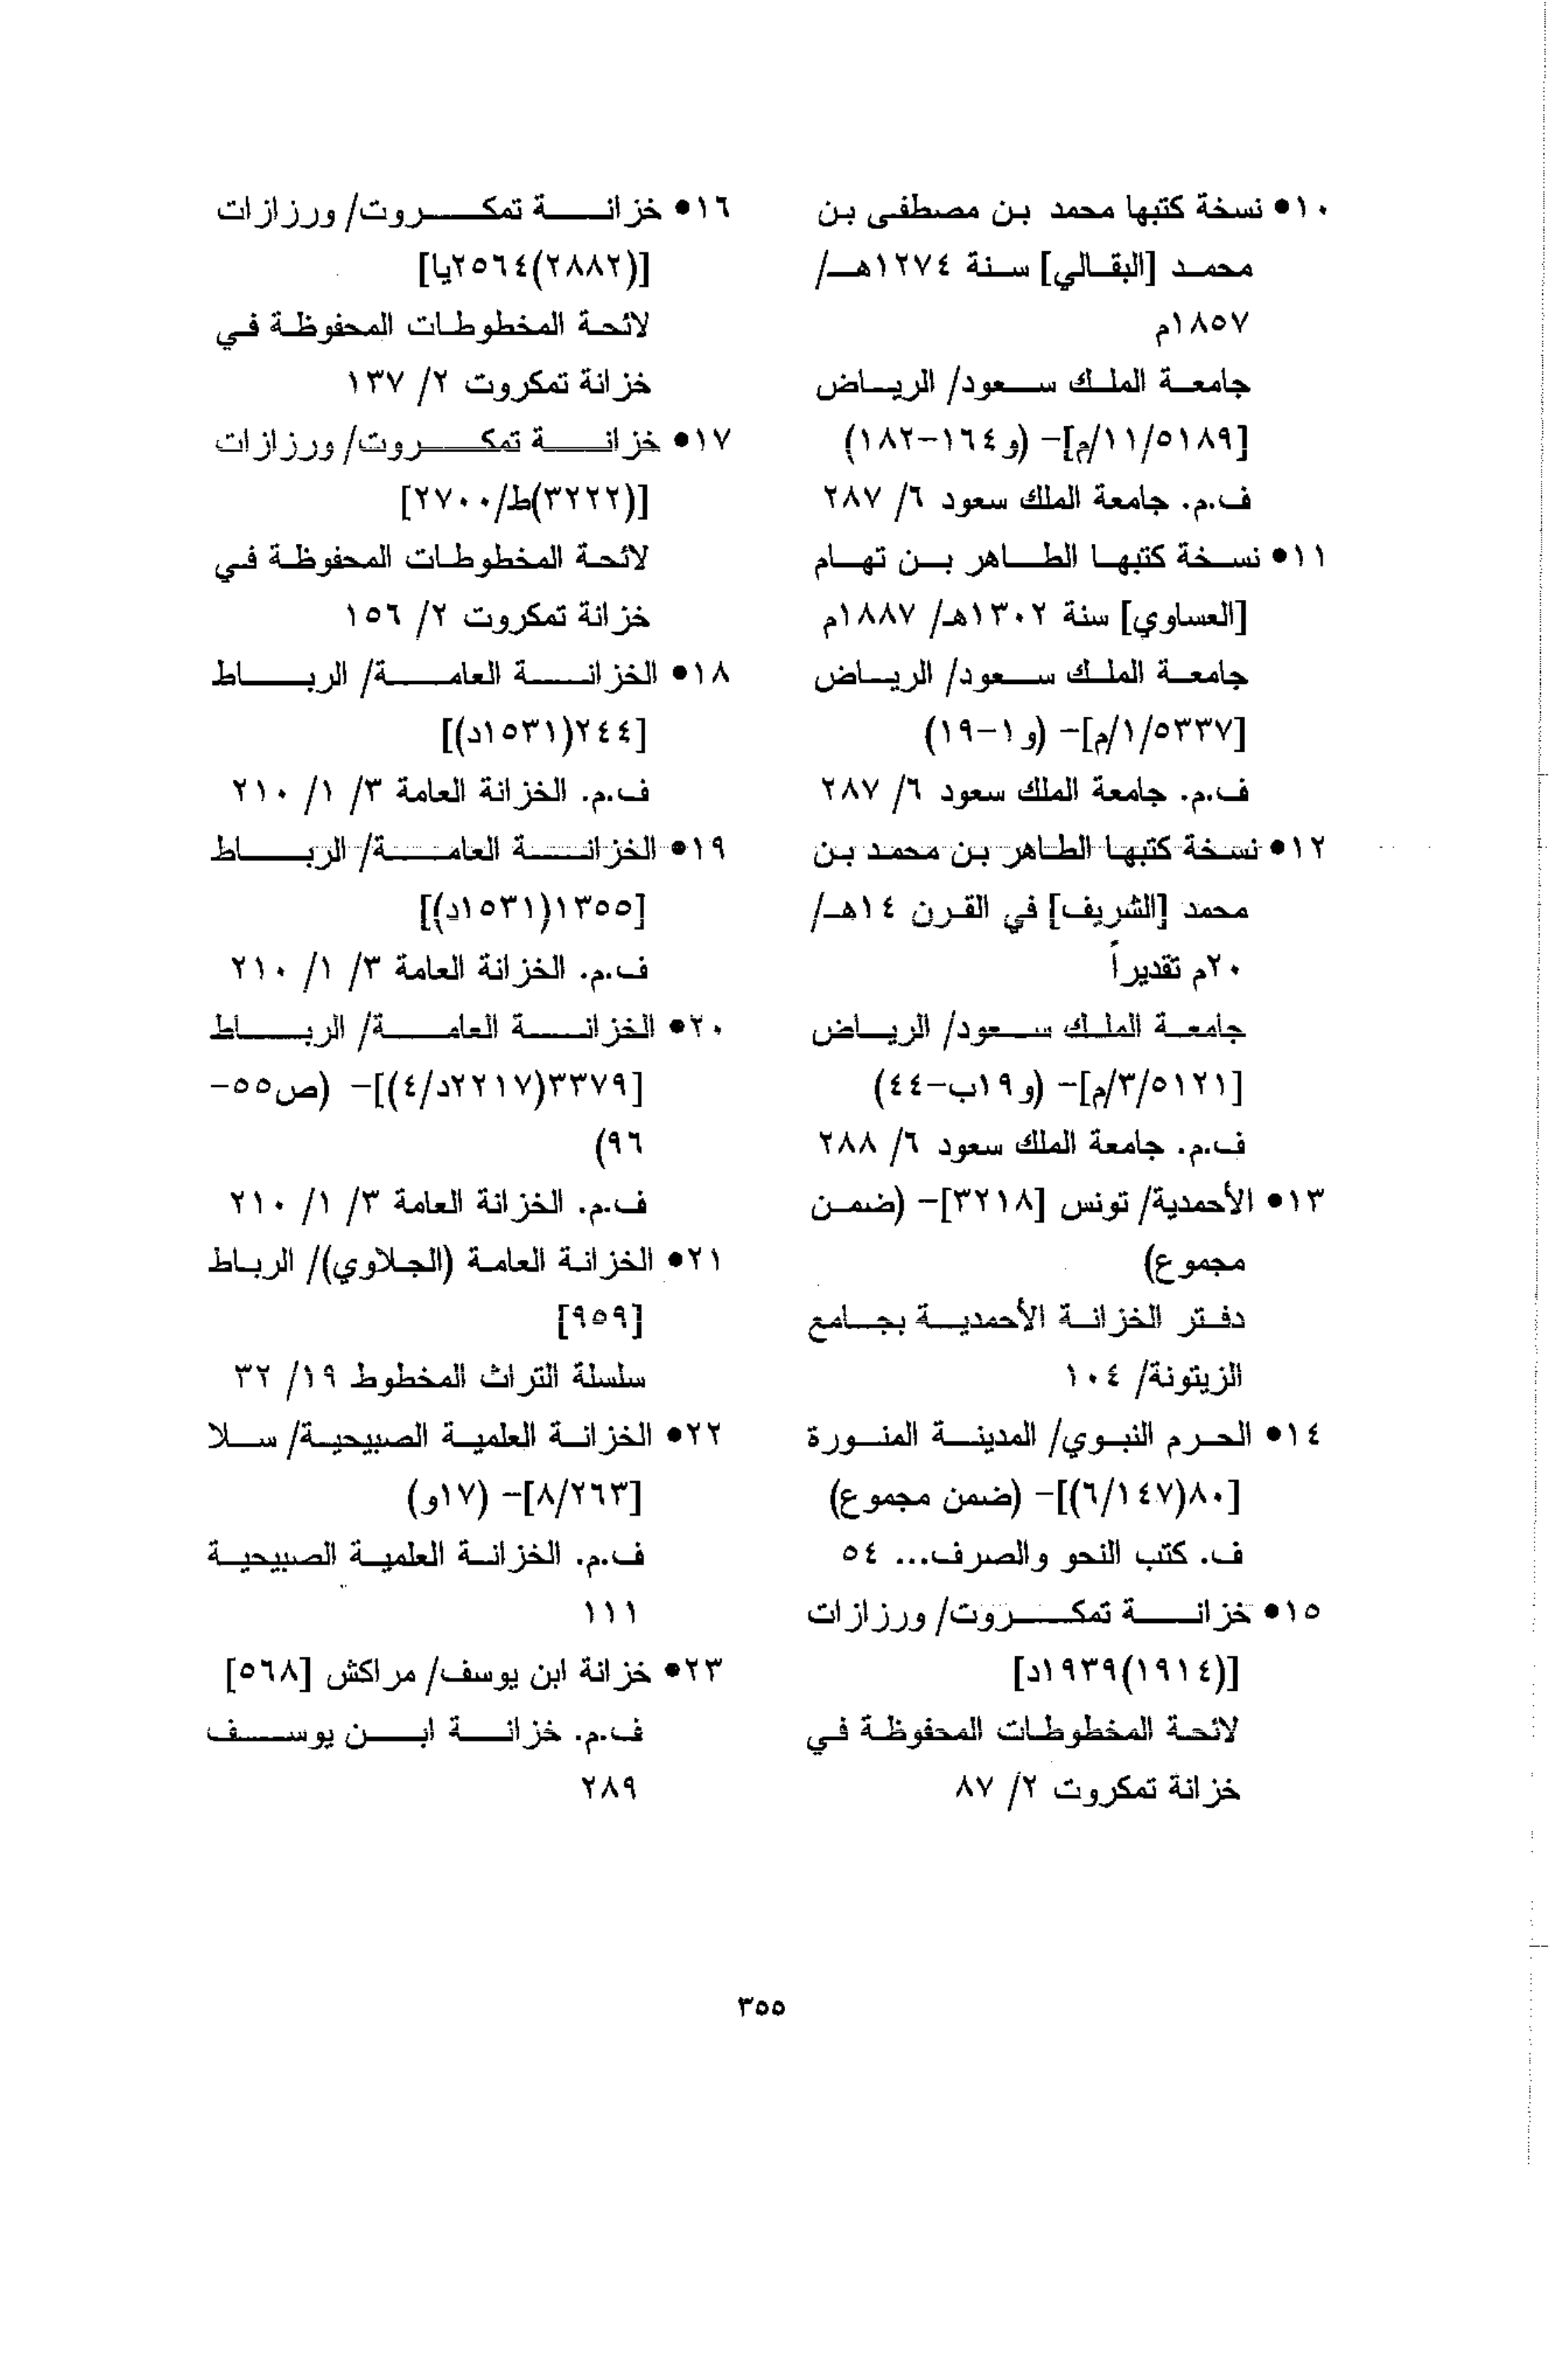 ١٠• نسخة كتبها محمد بن مصطفى بن
محمد [البقالي] سنة ١٢٧٤هـ/
١٨٥٧م
جامعة الملك سعود/ الرياض
[٥١٨٩/١١/م]- (و١٦٤-١٨٢)
ف.م. جامعة الملك سعود ٦/ ٢٨٧
١١• نسخة كتبها الطاهر بن تهام
[العساوي] سنة ١٣٠٢هـ/ ١٨٨٧م
جامعة الملك سعود/ الرياض
[٥٣٣٧/١/م]- (و١-١٩)
ف.م. جامعة الملك سعود ٦/ ٢٨٧
١٢• نسخة كتبها الطاهر بن محمد بن
محمد [الشريف] في القرن ١٤هـ/
٢٠م تقديراً
جامعة الملك سعود/ الرياض
[٥١٢١/٣/م]- (و١٩ب-٤٤)
ف.م. جامعة الملك سعود ٦/ ٢٨٨
١٣• الأحمدية/ تونس [٣٢١٨]- (ضمن
مجموع)
دفتر الخزانة الأحمدية بجامع
الزيتونة/ ١٠٤
١٤• الحرم النبوي/ المدينة المنورة
[٨٠(٦/١٤٧)]- (ضمن مجموع)
ف. كتب النحو والصرف... ٥٤
١٥• خزانة تمكروت/ ورزازات
[(١٩١٤)١٩٣٩د]
لائحة المخطوطات المحفوظة في
خزانة تمكروت ٢/ ٨٧
١٦• خزانة تمكروت/ ورزازات
[(٢٨٨٢)٢٥٦٤يا]
لائحة المخطوطات المحفوظة في
خزانة تمكروت ٢/ ١٣٧
١٧• خزانة تمكروت/ ورزازات
[(٣٢٢٢)ط/٢٧٠٠]
لائحة المخطوطات المحفوظة في
خزانة تمكروت ٢/ ١٥٦
١٨• الخزانة العامة/ الرباط
[٢٤٤(١٥٣١د)]
ف.م. الخزانة العامة ٣/ ١/ ٢١٠
١٩• الخزانة العامة/ الرباط
[١٣٥٥(١٥٣١د)]
ف.م. الخزانة العامة ٣/ ١/ ٢١٠
٢٠• الخزانة العامة/ الرباط
[٣٣٧٩(٢٢١٧د/٤)]- (ص٥٥-
٩٦)
ف.م. الخزانة العامة ٣/ ١/ ٢١٠
٢١• الخزانة العامة (الجلاوي)/ الرباط
[٩٥٩]
سلسلة التراث المخطوط ١٩/ ٣٢
٢٢• الخزانة العلمية الصبيحية/ سلا
[٨/٢٦٣]- (١٧و)
ف.م. الخزانة العلمية الصبيحية
١١١
٢٣• خزانة ابن يوسف/ مراكش [٥٦٨]
ف.م. خزانة ابن يوسف
٢٨٩
٣٥٥